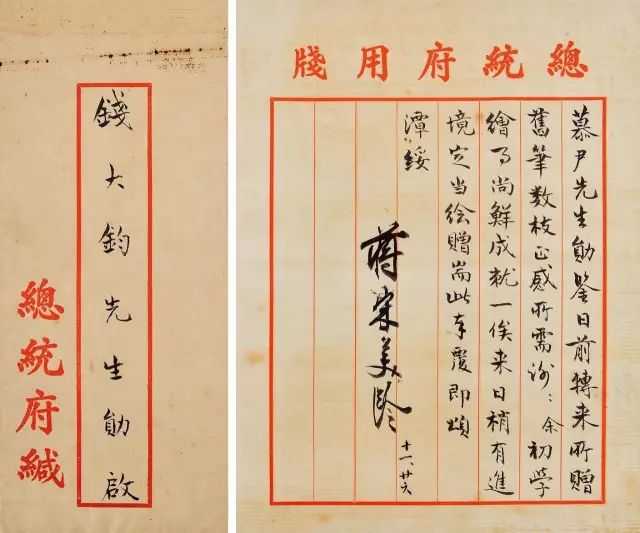 錢大鈞先生勛啟
總統府緘
總統府用牋
慕尹先生勛鑒日前轉来所贈
舊筆数枝正感所需謝：余初学
繪事尚鮮成就一俟来日稍有進
境定当絵贈耑此奉覆即頌
潭綏
蔣宋美齡
十一、廿六